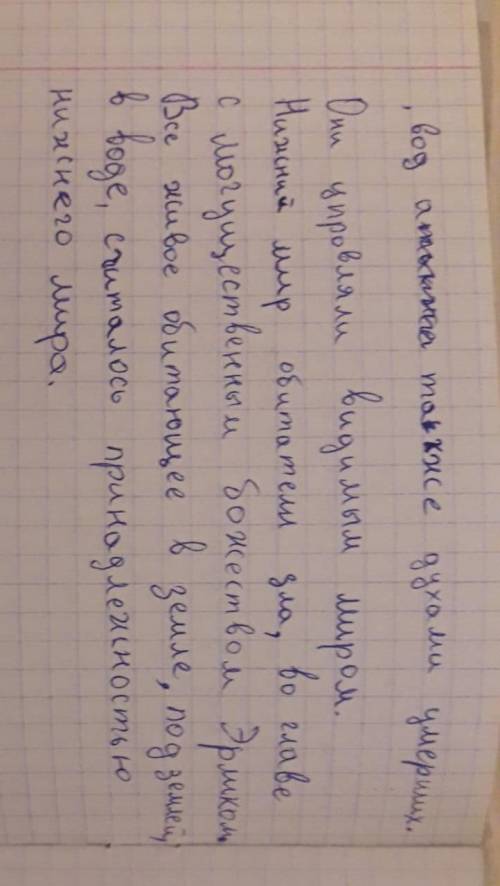 , вод а также духами умерших.
Они упровляли видимым миром.
Нижний мир обитатели зла, во главе
с могущественным божеством Эрликом
Все живое обитающее в земле, под землей,
в воде, считалось принадлежностью
нижнего мира.